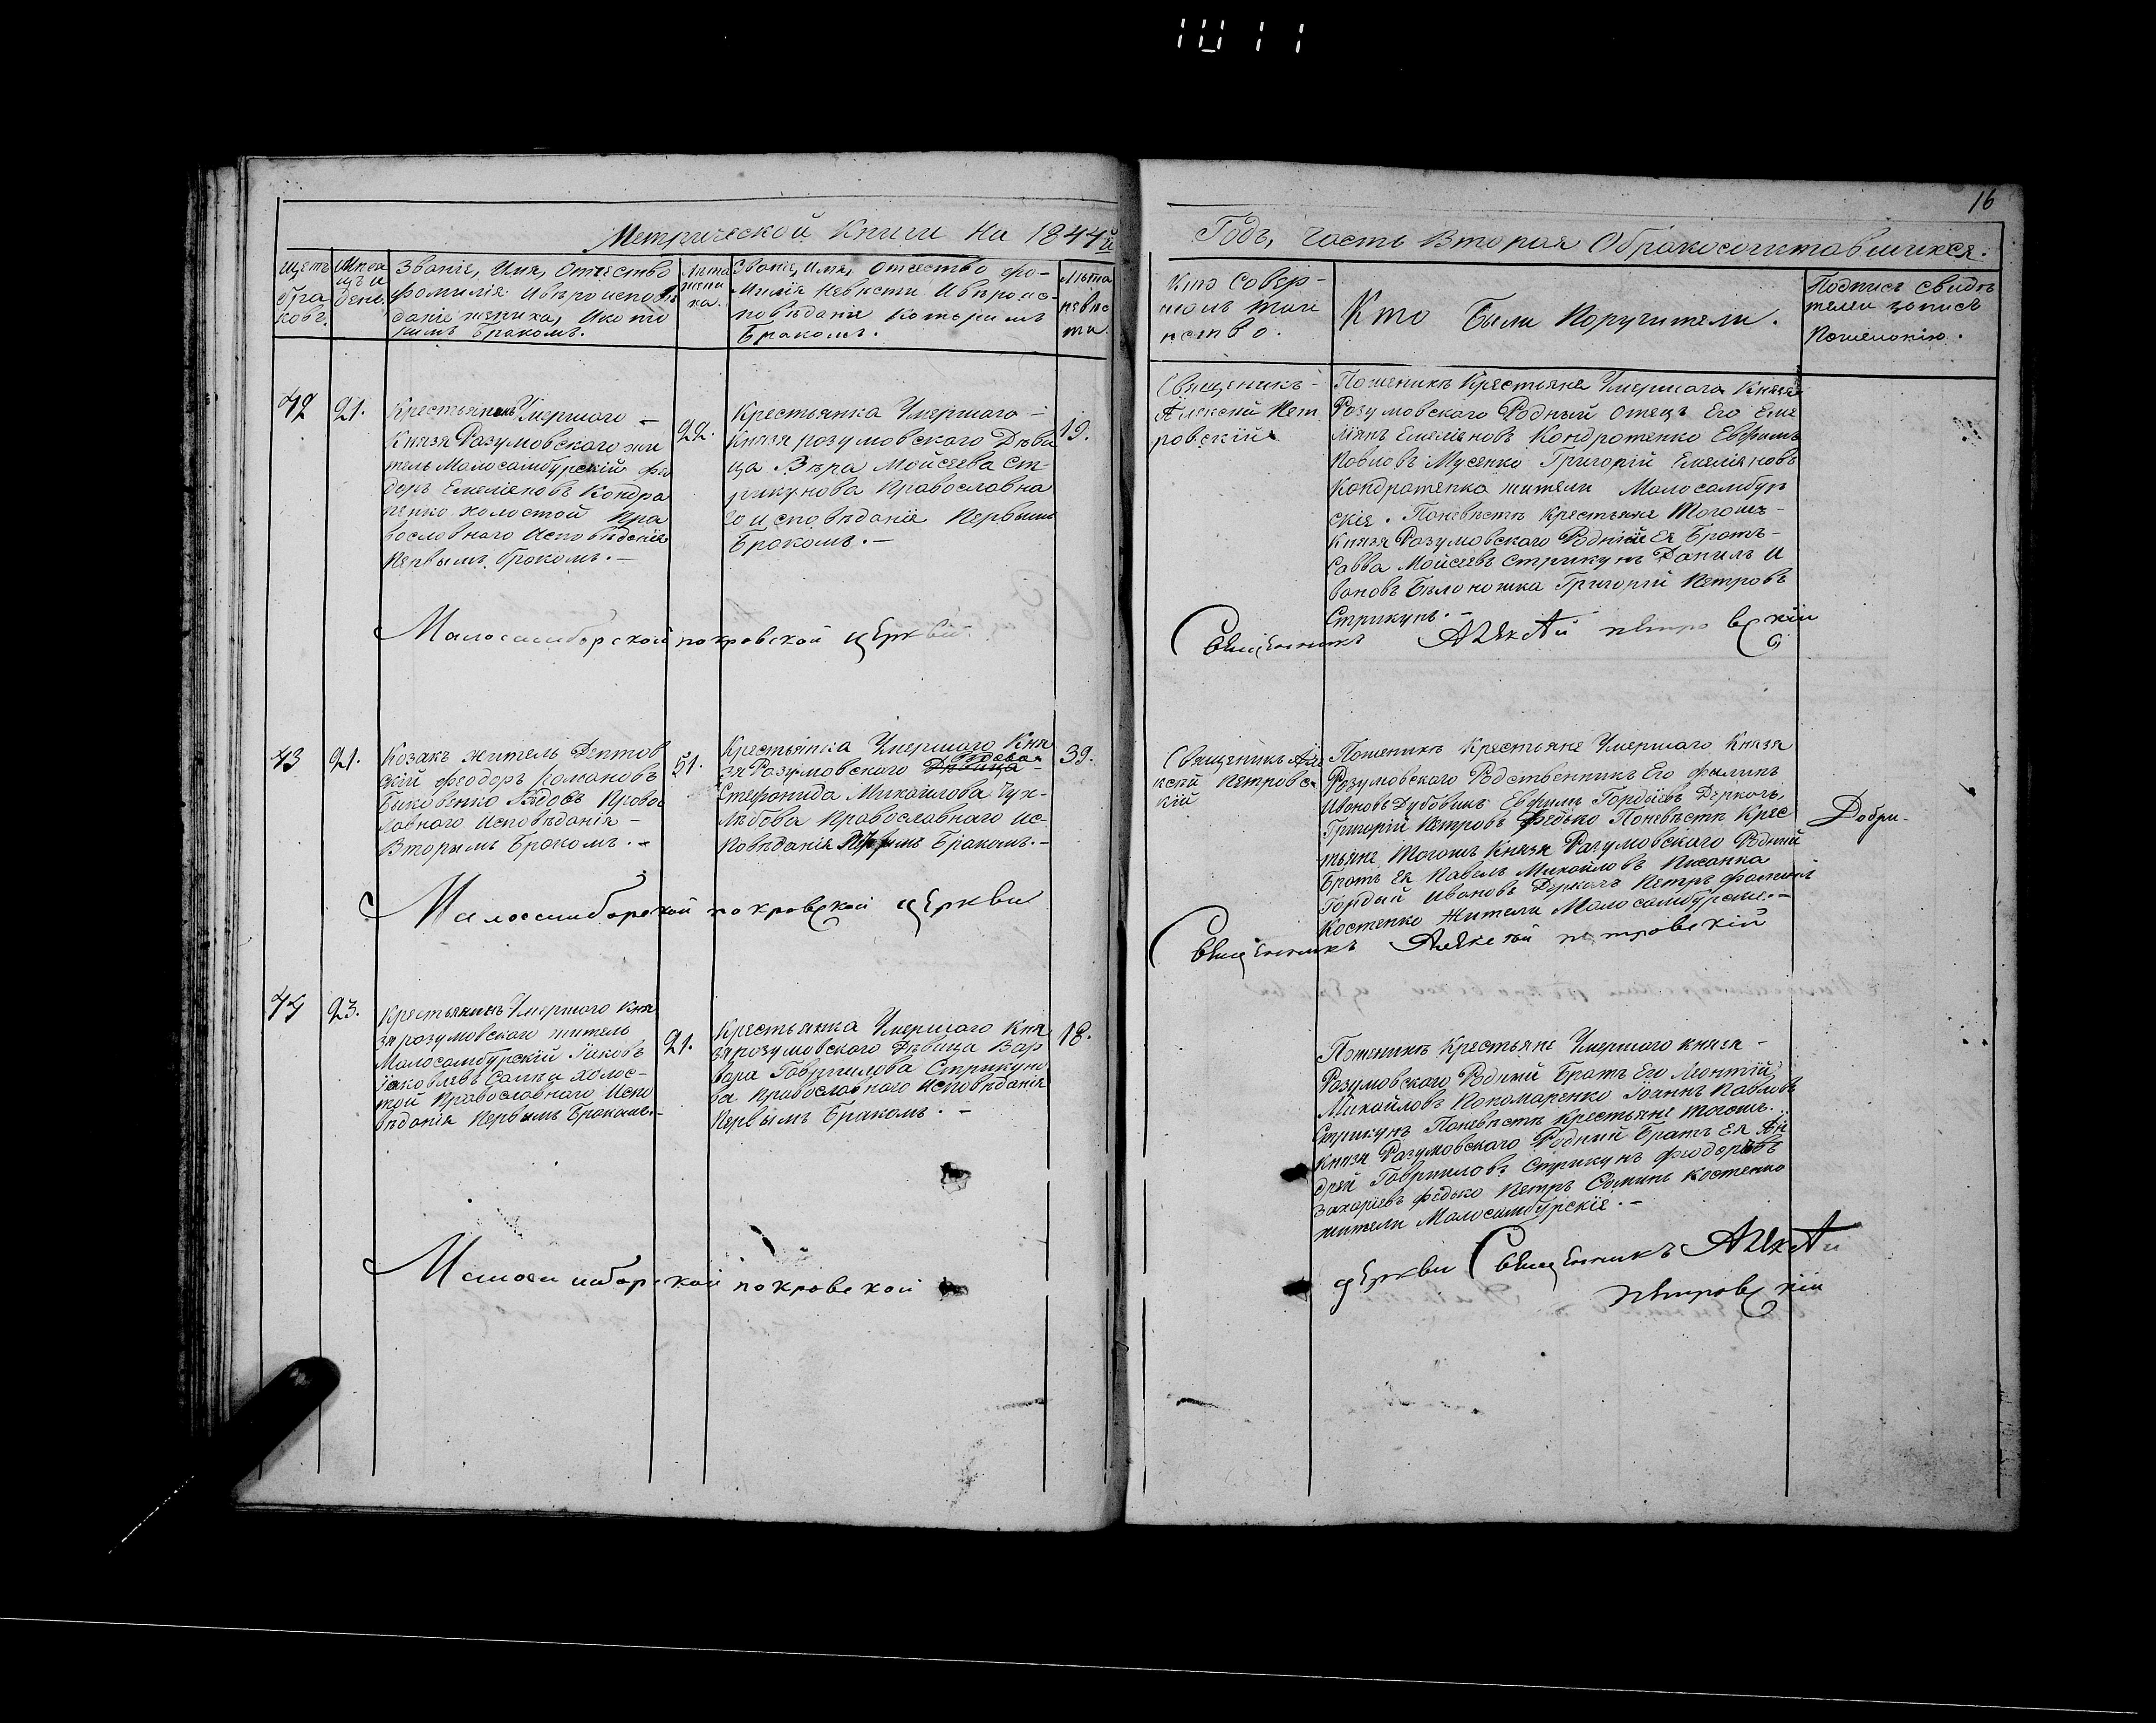 1011
16
Метрической Книги На 1844й
Годъ, Часть Вторая Обракосочитавшихся.
Щетъ
бра
ковъ.
Месе
цъ и
День.
Званіе, Имя, Отчество
Фамилія Ивѣроисповѣ
даніе жениха, Ико то
рымъ Бракомъ.
Лета
жени
ха.
Званіе, имя, отчество фа-
Милія Невѣсти Ивѣроис-
повѣданіе Которимъ
Бракомъ.
Лѣта
невѣс
ти.
Кто Совер-
шалъ таи
нство.
Кто Были Поручители.
Подписъ Свидѣ
телей записъ
Пожеланію.
42
21.
Крестьянинъ Умершаго –
Князя Разумовского жи
тель Малосамбурскій Фео
доръ Емеліяновъ Кондра
тенко холостой Пра
вославнаго Исповѣданія
Первымъ бракомъ. –
22.
Крестьянка Умершаго –
Князя розумовского Дѣви
ца Вѣра Мойсеева Ст-
рикунова Православна
го исповѣданіе Первымъ
Бракомъ. –
19.
Священикъ –
Алексій Пет
ровскій
Пожениκѣ Крестьяне Умершаго Князя
Розумовского Родный отецъ Его Еме
ліянъ Емеліяновъ Кондратенко Евфимъ
Павловъ Мусенко Григорій Емеліяновъ
Кондратенко жители Малосамбур
скіе. Поневѣсти крестьяне Тогожъ –
Князя Розумовского Родній Ея Братъ –
Савва Мойсеевъ Стрикунъ Данилъ И
вановъ Бѣлоножка Григорій Петровъ
Стрикунъ. –
Малосамборской покровской церкви
Священникъ Алексѣй петровскій
43
21.
Козакъ житель Дептов
скій Феодоръ Романовъ
Биковенко Вдовъ Правос
лавного Исповѣданія –
Вторымъ Бракомъ. –
51.
Крестьянка Умершаго Кня
зя Разумовского Дѣвица –
вдова
Стефанида Михайлова Чух-
лѣбова Православнаго ис-
повѣданія Бракомъ. –
39.
Священикъ Але
ксѣй Петровс
кій
Поженикѣ Крестьяне Умершаго Князя
Розумовского Родственникъ Его Филипъ
Ивановъ Дубовикъ Евфимъ Гордѣевъ Деркачъ,
Григорій Петровъ Федько Поневѣсти Крес
тьяне Тогожъ Князя Разумовского Родній
Братъ Ея Павелъ Михайловъ
Гордій Ивановъ Деркачъ Петръ Фоминъ
Костенко Жители Малосамбурскіе. –
Добри.
Малосамборской покровской церкви
Священникъ Алексѣй петровскій
44
23.
Крестьянинъ Умершаго Кня
зя розумовскаго житель
Малосамбурскій Іаковъ
Іаковлевъ холос-
той Православнаго Испо
вѣданія Первымъ Бракомъ. –
21.
Крестьянка Умершаго Кня
зя розумовского Дѣвица Вар
вара Гавріилова Стрикуно
ва Православнаго исповѣданія
Первымъ Бракомъ. –
18.
Поженикѣ Крестьяне Умершаго князя –
Разумовского Родний Братъ Его Леонтій
Михайловъ Пономаренко Іоаннъ Павловъ
Стрикунъ Поневѣсти Крестьяне тогожъ
Князя Разумовского Родний Братъ Ея Ан
дрей Гавриловъ Стрикунъ Феодоръ
Захаріевъ Федько Петръ Фоминъ Костенко
жители Малосамбурскіе. –
Малосамборской покровской
церкви Священникъ Алексѣй
петровскій